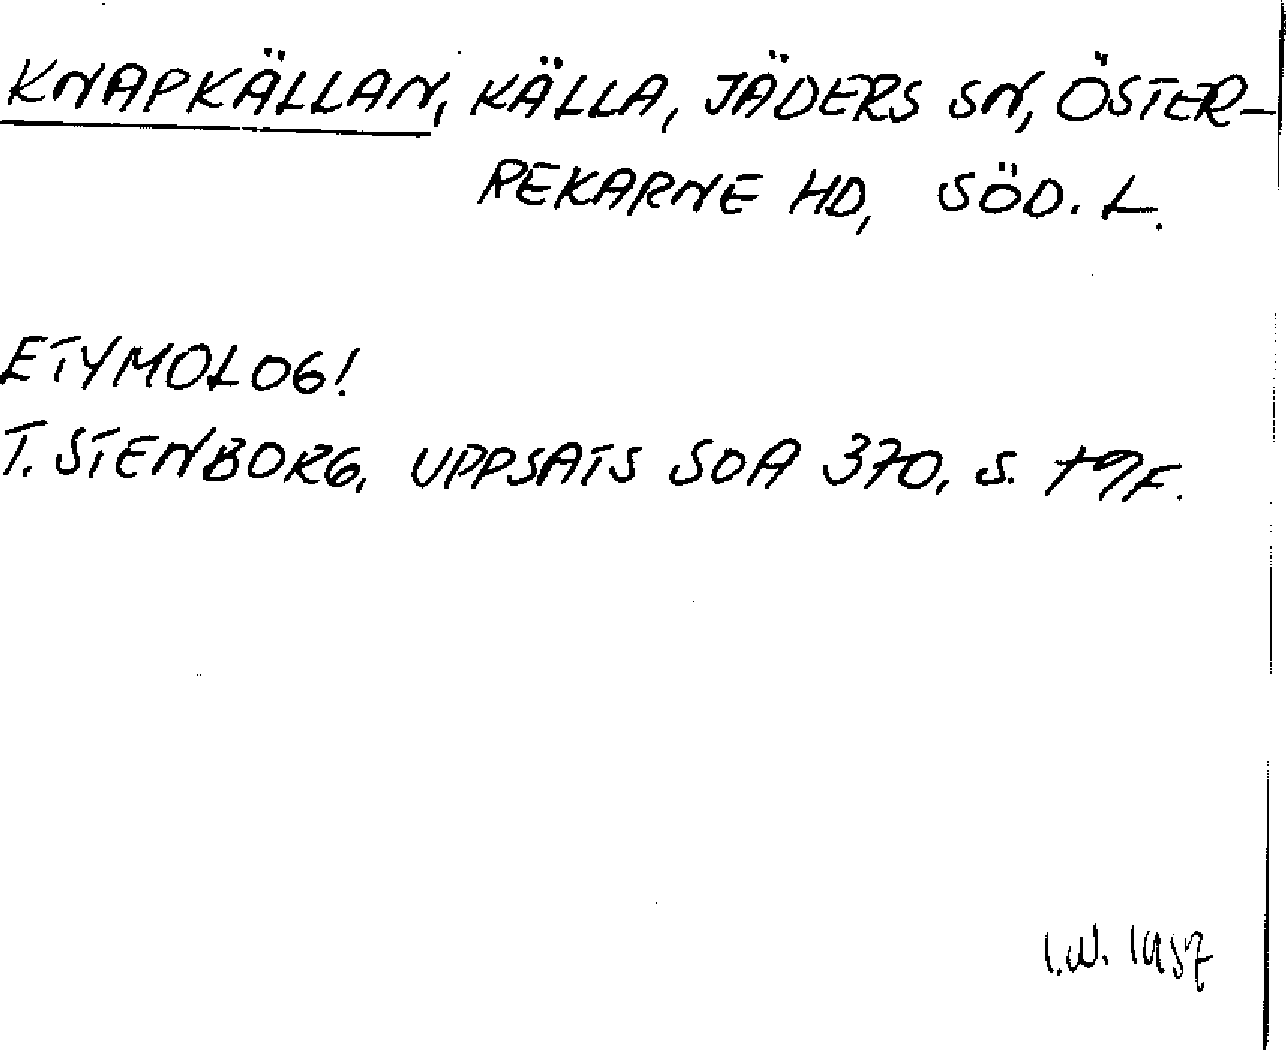 KNAPKÄLLAN, KÄLLA, JÄDERS SN, ÖSTER-
REKARNE HD, SÖD. L.
ETYMOLOG!
T. STENBORG, UPPSATS SOA 370, S. 79F.
I.W. 1957